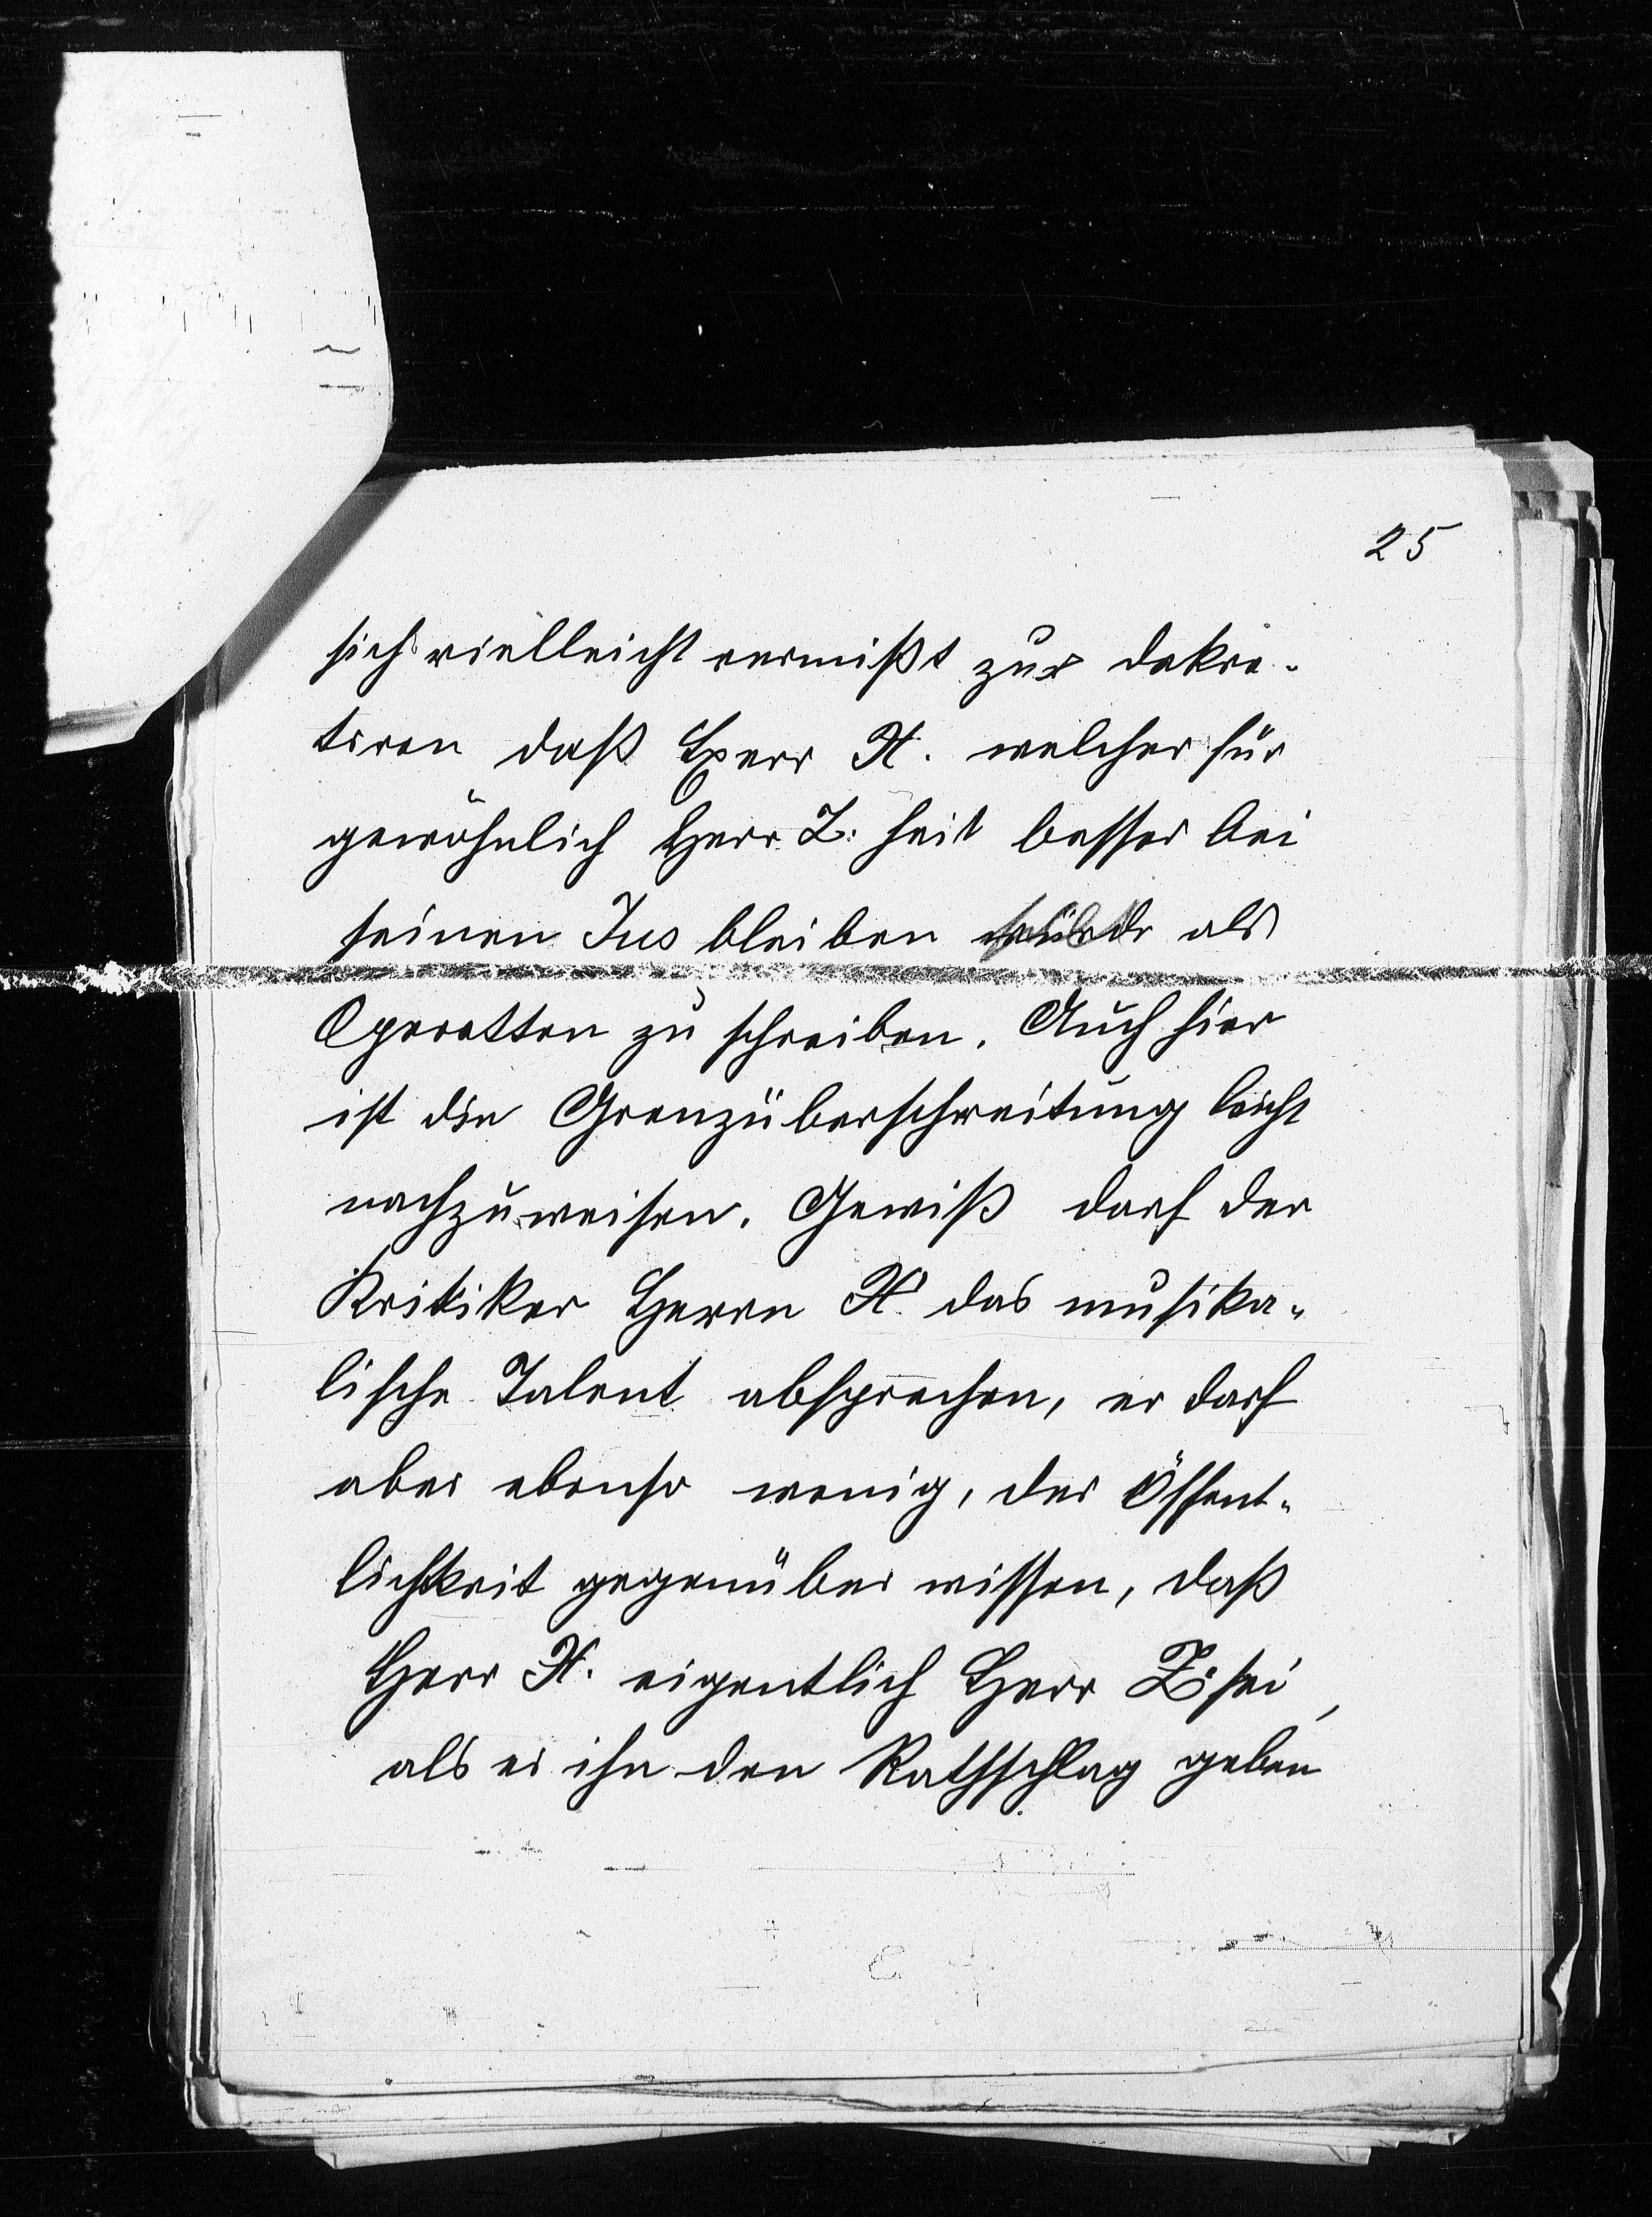 25
sich vielleicht vermißt zu dekre-
tiren daß Herr X. welcher für
gewöhnlich Herr Z. heißt besser bei
seinen Jus bleiben würde als
Operetten zu schreiben. Auch hier
ist die Grenzüberschreitung leicht
nachzuweisen. Gewiß darf der
Kritiker Herrn X. das musika-
lische Talent absprechen, er darf
aber ebenso wenig, der Öffent-
lichkeit gegenüber wissen, daß
Herr X. eigentlich Herr Z. sei,
als er ihn den Rathschlag geben